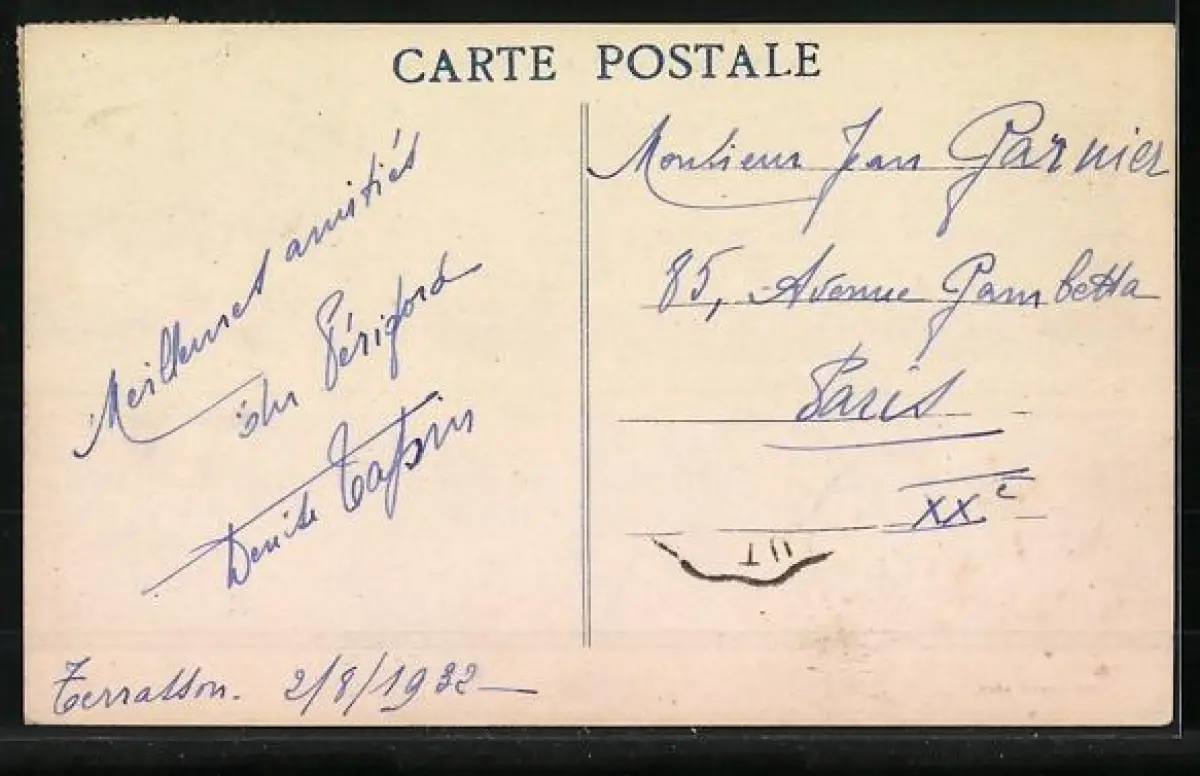 CARTE POSTALE
Meilleures amitiés
du Périgord
Denise Tassin
Terrasson. 2/8/1932
Monsieur Jean Garnier
85, Avenue Gambetta
Paris
XXe